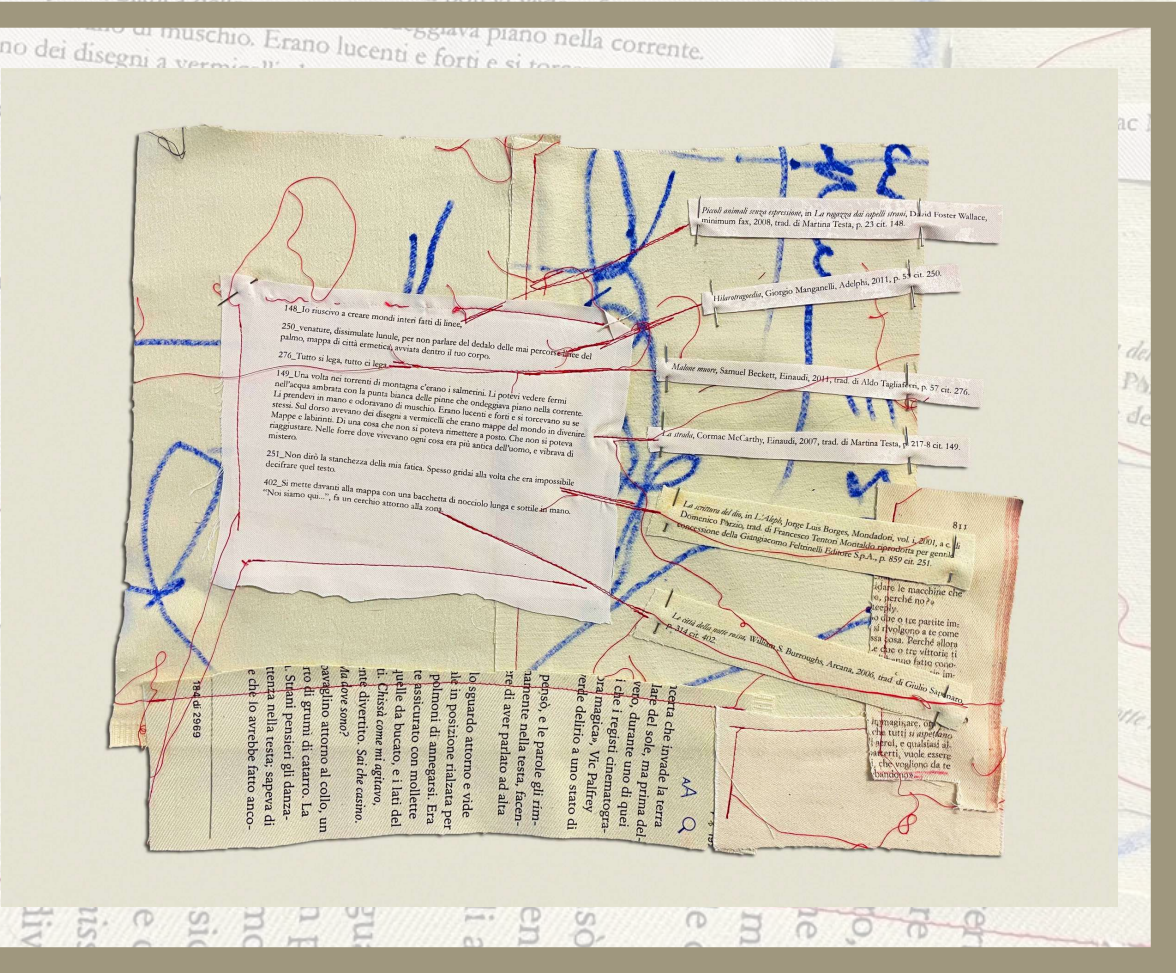 di muschio. Erano lucenti e forti e si
ondeggiava piano nella corrente.
no dei disegni a
148_Io riuscivo a creare mondi interi fatti di linee,
250_venature, dissimulate lunule, per non parlare del dedalo delle mai percorse linee del
palmo, mappa di città ermetica, avviata dentro il tuo corpo.
276_Tutto si lega, tutto ci lega.
149_Una volta nei torrenti di montagna c'erano i salmerini. Li potevi vedere fermi
nell'acqua ambrata con la punta bianca delle pinne che ondeggiava piano nella corrente.
Li prendevi in mano e odoravano di muschio. Erano lucenti e forti e si torcevano su se
stessi. Sul dorso avevano dei disegni a vermicelli che erano mappe del mondo in divenire.
Mappe e labirinti. Di una cosa che non si poteva rimettere a posto. Che non si poteva
riaggiustare. Nelle forre dove vivevano ogni cosa era più antica dell'uomo, e vibrava di
mistero.
251_Non dirò la stanchezza della mia fatica. Spesso gridai alla volta che era impossibile
decifrare quel testo.
402_Si mette davanti alla mappa con una bacchetta di nocciolo lunga e sottile in mano.
“Noi siamo qui...”, fa un cerchio attorno alla zona.
Piccoli animali senza espressione, in La ragazza dai capelli strani, David Foster Wallace,
minimum fax, 2008, trad. di Martina Testa, p. 23 cit. 148.
Hilarotragoedia, Giorgio Manganelli, Adelphi, 2011, p. 53 cit. 250.
Malone muore, Samuel Beckett, Einaudi, 2011, trad. di Aldo Tagliaferri, p. 57 cit. 276.
La strada, Cormac McCarthy, Einaudi, 2007, trad. di Martina Testa, p 217-8 cit. 149.
La scrittura del dio, in L'Aleph, Jorge Luis Borges, Mondadori, vol. i, 2001, a c. di
Domenico Porzio, trad. di Francesco Tentori Montalto riprodotta per gentile
concessione della Giangiacomo Feltrinelli Editore S.p.A., p. 859 cit. 251.
La città della notte rossa, William S. Burroughs, Arcana, 2006, trad. di Giulio Saponaro,
p. 314 cit. 402
811
idare le macchine che
o, perché no?»
eeply.
o due o tre partite im-
si rivolgono a te come
ssa cosa. Perché allora
e due o tre vittorie ti
anno fatto cono-
immaginare, 
che tutti si aspettano
i eroi, e qualsiasi al-
arterti, vuole essere
i, che vogliono da te
bandono».
AA
icerta che invade la terra
lare del sole, ma prima del-
vero, durante uno di quei
i che i registi cinematogra-
ora magica», Vic Palfrey
verde delirio a uno stato di
pensò, e le parole gli rim-
namente nella testa, facen-
re di aver parlato ad alta
lo sguardo attorno e vide
ile in posizione rialzata per
polmoni di annegarsi. Era
te assicurato con mollette
quelle da bucato, e i lati del
ti. Chissà come mi agitavo,
nte divertito. Sai che casino.
Ma dove sono?
bavaglino attorno al collo, un
rto di grumi di catarro. La
. Strani pensieri gli danza-
ttenza nella testa; sapeva di
e che lo avrebbe fatto anco-
184 di 2969